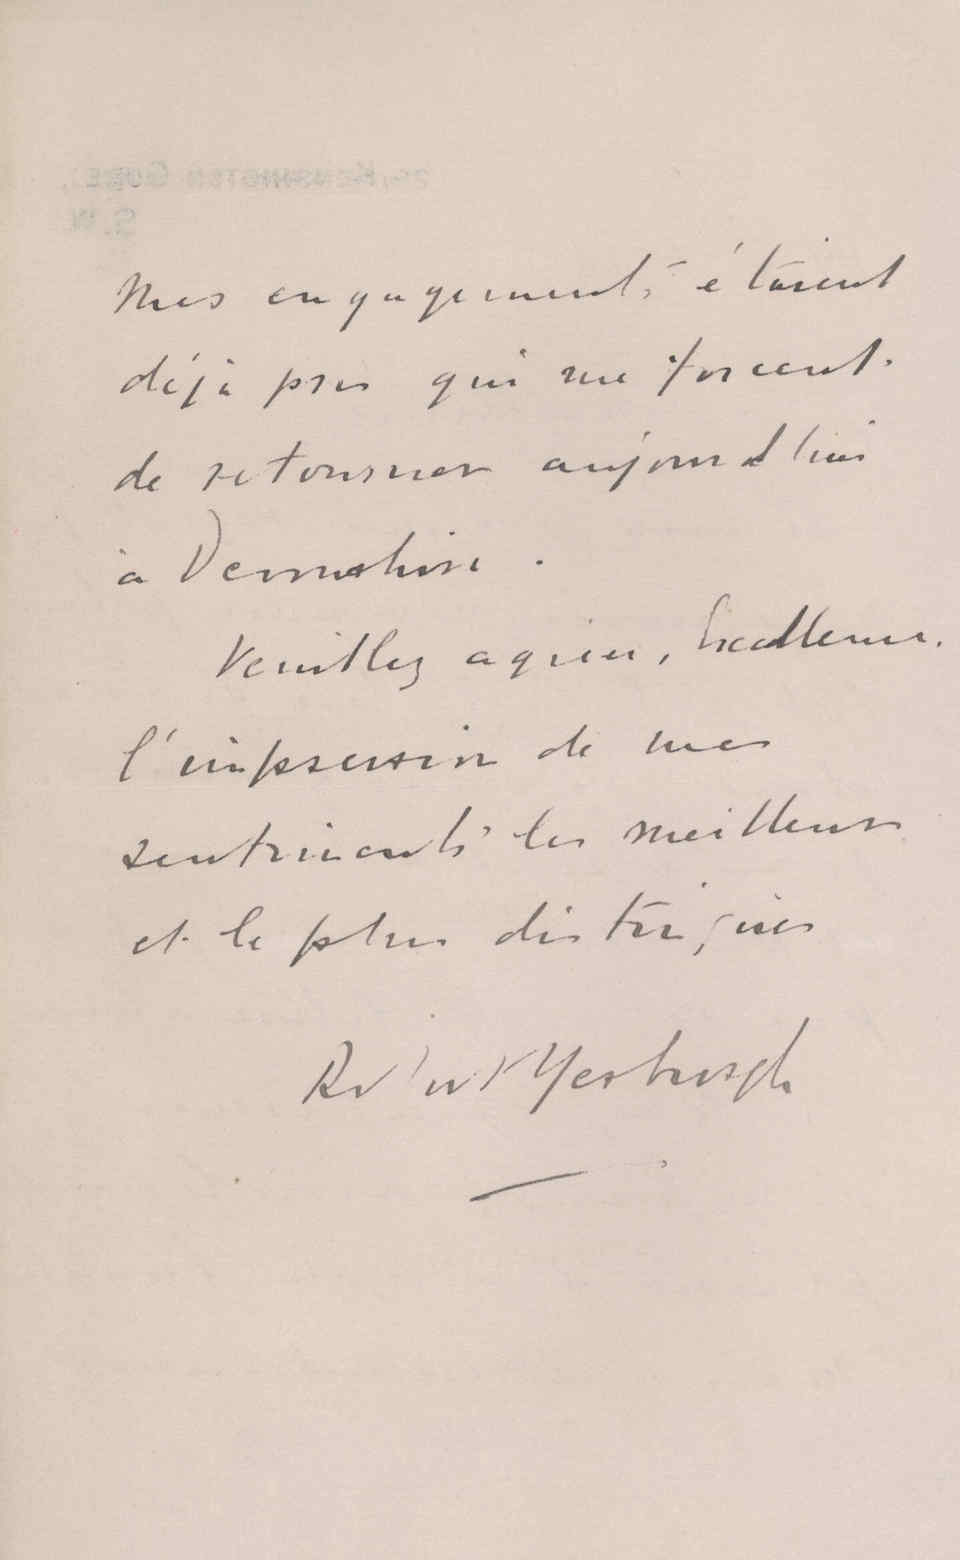 25, KENSINGTON GORE,
S.W.
Mes engagements étaient
déjà pris qui me forcent
de retourner aujourd'hui
à Devonshire.
Veuillez agréer, Excellence,
l'impression de mes
sentiments les meilleurs
et le plus distingués
Robert Yerburgh